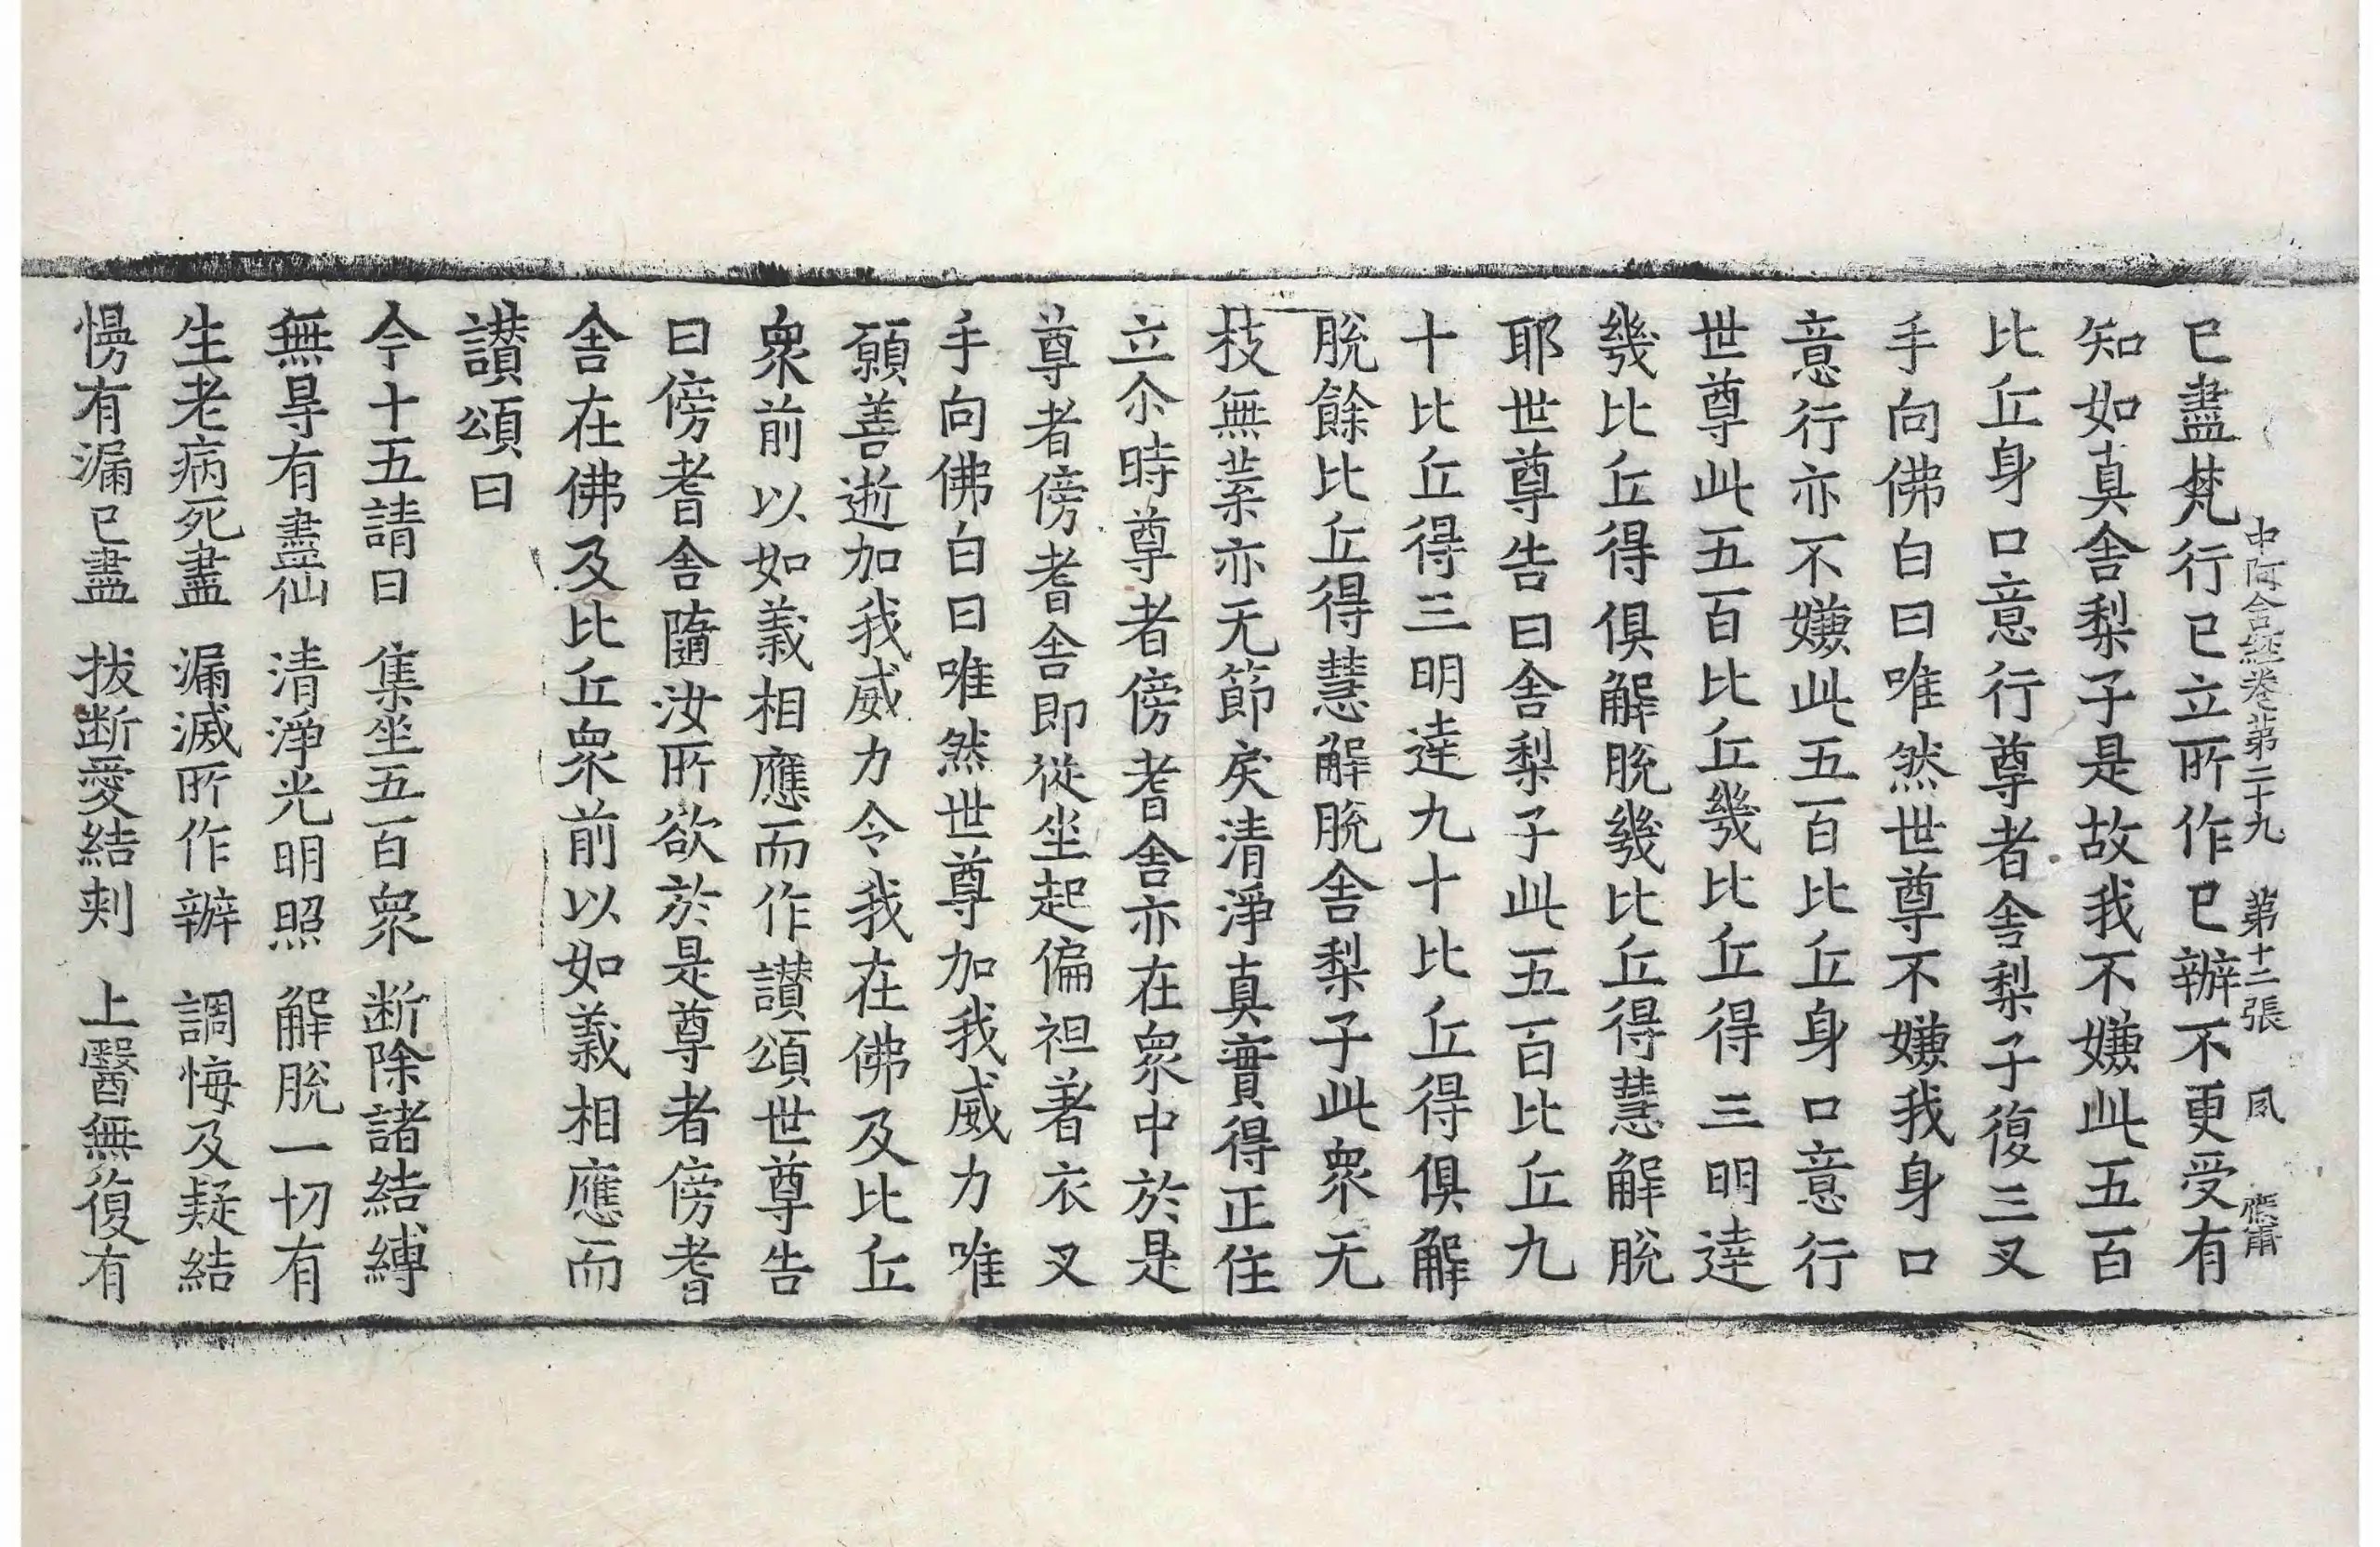 中阿含經卷苐二十九　苐十二張　凤
已盡梵行已立所作已辦不更受有
知如真舍梨子是故我不嫌此五百
比丘身口意行尊者舍梨子復三叉
手向佛白曰唯然世尊不嫌我身口
意行亦不嫌此五百比丘身口意行
世尊此五百比丘幾比丘得三明達
幾比丘得俱解脫幾比丘得慧解脫
耶世尊告曰舍梨子此五百比丘九
十比丘得三明達九十比丘得俱解
脫餘比丘得慧解脫舍梨子此衆无
枝無葉亦无節戾清淨真實得正住
立尒時尊者傍耆舍亦在衆中於是
尊者傍耆舍即從坐起偏袒著衣叉
手向佛白曰唯然世尊加我威力唯
願善逝加我威力令我在佛及比丘
衆前以如義相應而作讃頌世尊告
曰傍耆舍隨汝所欲於是尊者傍耆
舍在佛及比丘衆前以如義相應而
讃頌曰
今十五請日　集坐五百衆　断除諸結縛
無㝵有盡仙　清淨光明照　解脫一切有
生老病死盡　漏滅所作辦　調悔及疑結
慢有漏已盡　拔断愛結刺　上醫無復有